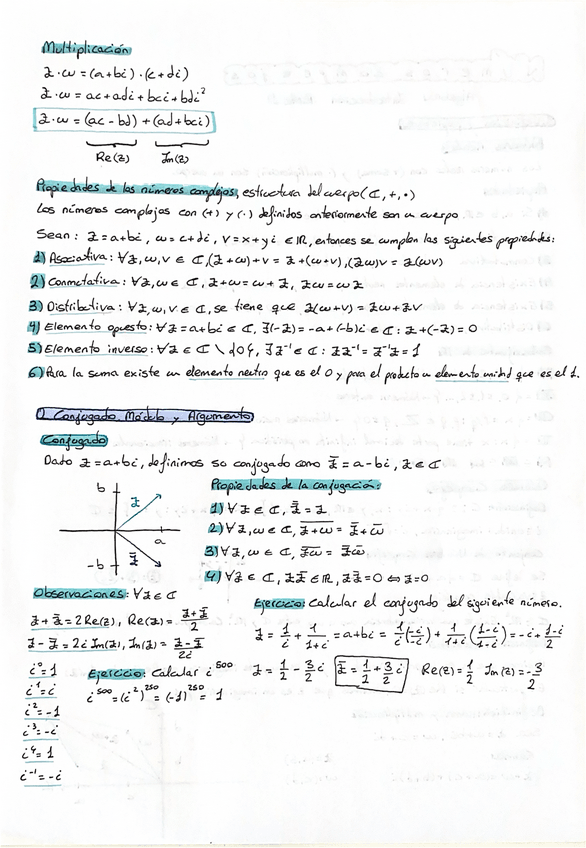 Multiplicación
z·w = (a+bi)·(c+di)
z·w = ac+adi+bci+bdi²
z·w = (ac-bd)+(ad+bci)
Re(z) Im(z)
Propiedades de los números complejos, estructura del cuerpo (ℂ,+,·)
Los números complejos con (+) y (·) definidos anteriormente son un cuerpo.
Sean: z=a+bi, w=c+di, v=x+yi ∈ ℝ, entonces se cumplen las siguientes propiedades:
1) Asociativa: ∀z,w,v ∈ ℂ, (z+w)+v = z+(w+v), (zw)v = z(wv)
2) Conmutativa: ∀z,w ∈ ℂ, z+w=w+z, zw=wz
3) Distributiva: ∀z,w,v ∈ ℂ, se tiene que z(w+v) = zw+zv
4) Elemento opuesto: ∀z=a+bi ∈ ℂ, ∃(-z)=-a+(-b)i ∈ ℂ : z+(-z)=0
5) Elemento inverso: ∀z ∈ ℂ \ {0}, ∃z⁻¹ ∈ ℂ : zz⁻¹=z⁻¹z=1
6) Para la suma existe un elemento neutro que es el 0 y para el producto un elemento unidad que es el 1.
2. Conjugado, Módulo y Argumento
Conjugado
Dado z=a+bi, definimos su conjugado como z̄=a-bi, z ∈ ℂ
b z a -b z̄
Propiedades de la conjugación:
1) ∀z ∈ ℂ, z̿=z
2) ∀z,w ∈ ℂ, \overline{z+w} = z̄+w̄
3) ∀z,w ∈ ℂ, \overline{zw} = z̄w̄
4) ∀z ∈ ℂ, zz̄ ∈ ℝ, zz̄=0 ⇔ z=0
Observaciones: ∀z ∈ ℂ
z+z̄=2Re(z), Re(z)=(z+z̄)/2
z-z̄=2i Im(z), Im(z)=(z-z̄)/2i
i⁰=1
i¹=i
i²=-1
i³=-i
i⁴=1
i⁻¹=-i
Ejercicio: Calcular i⁵⁰⁰
i⁵⁰⁰=(i²)²⁵⁰=(-1)²⁵⁰=1
Ejercicio: Calcular el conjugado del siguiente número.
z = 1/i + 1/(1+i) = a+bi = 1/i(-i/-i) + 1/(1+i)((1-i)/(1-i)) = -i+(1-i)/2
z = 1/2 - 3/2 i z̄ = 1/2 + 3/2 i Re(z)=1/2 Im(z)=-3/2